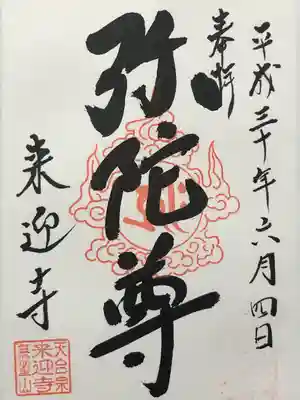 奉拝
平成三十年六月四日
弥陀尊
来迎寺
天台宗
来迎寺